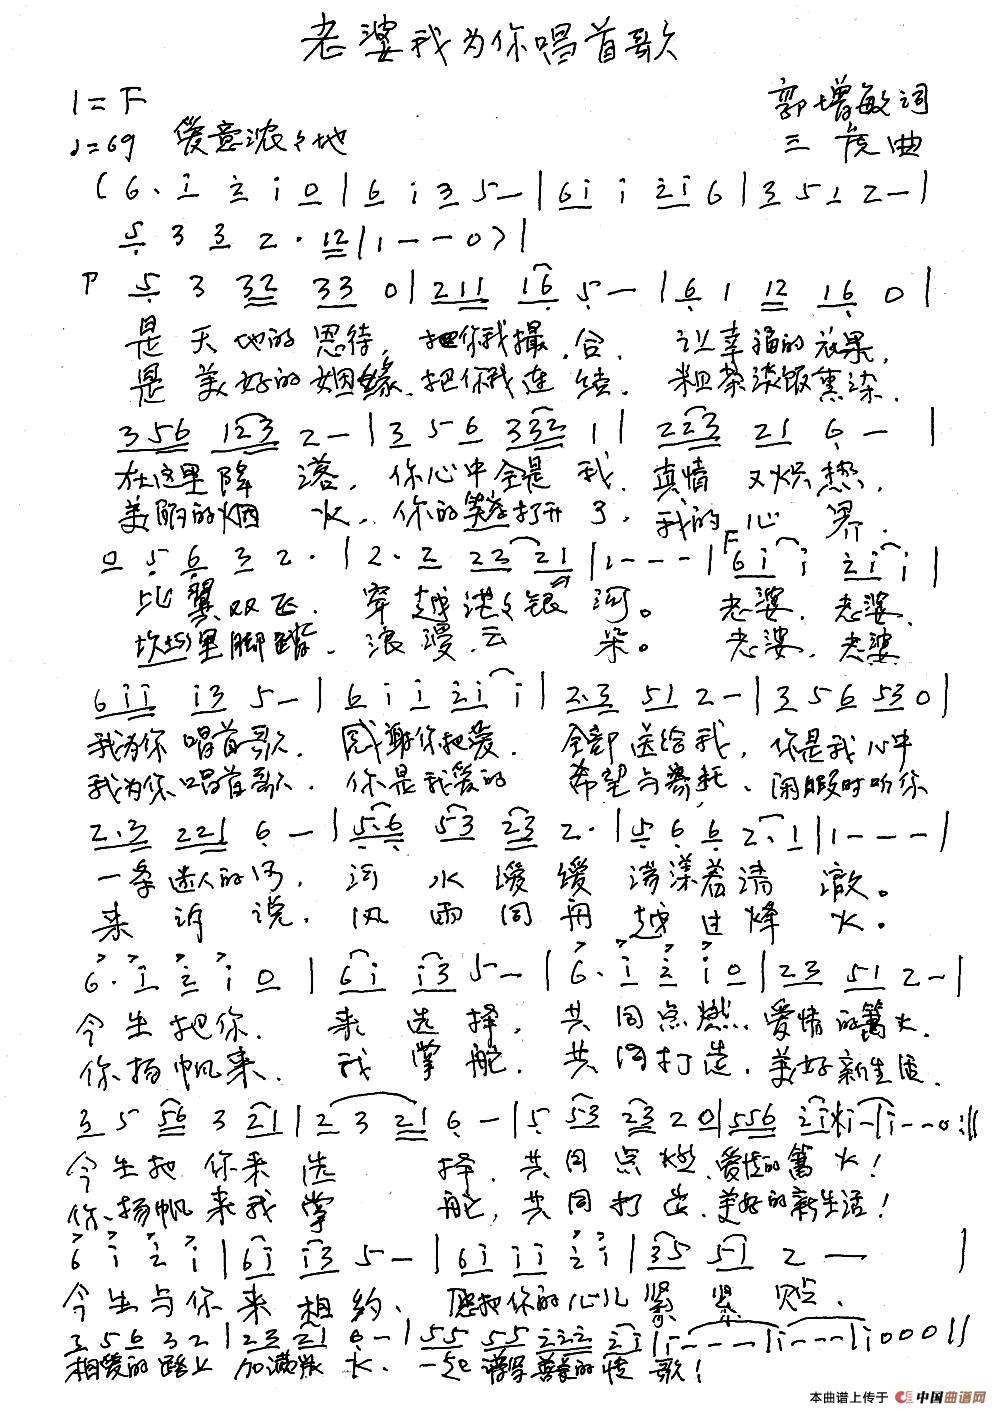 老婆我为你唱首歌
1=F 郭增敏词
♩=69 爱意浓々地 三虎曲
(6· i 2 i 0 | 6 i 3 5 - | 6i i 2i 6 | 3 5 1 2 - |
5 3 3 2· 12 | 1 - - 0) |
P 5 3 32 33 0 | 211 16 5 - | 6 1 12 16 0 |
是天地的恩待,把你我撮合.让幸福的效果,
是美好的姻缘.把你我连结.粗茶淡饭熏染.
356 123 2 - | 3 5 6 332 1 | 223 21 6 - |
在这里降落,你心中全是我.真情又炽热,
美丽的烟火.你的笑声打开了,我的心界.
0 5 6 3 2· | 2· 2 22 21 | 1 - - - | F 6i i 2i i |
比翼双飞.穿越茫々银河。老婆,老婆,
坎坷里脚踏.浪漫云朵。老婆,老婆
6ii i3 5 - | 6 i i 2i i | 2·3 51 2 - | 3 5 6 53 0 |
我为你唱首歌.感谢你把爱.全部送给我,你是我心中
我为你唱首歌.你是我爱的希望与寄托、闲暇时听你
2·3 221 6 - | 5·6 53 23 2· | 5 6 6 2·1 | 1 - - - |
一条迷人的河,河水缓缓荡漾着清澈。
来诉说.风雨同舟越过烽火。
6· i 2 i 0 | 6i i3 5 - | 6· i 2 i 0 | 23 51 2 - |
今生把你.来选择,共同点燃.爱情的篝火.
你扬帆来.我掌舵.共同打造.美好新生活.
3 5 56 3 21 | 2 3 21 6 - | 5 53 23 2 0 | 556 2i i - | i - - 0 :||
今生把你来选择.共同点燃.爱情的篝火!
你.扬帆来我掌舵,共同打造.美好的新生活!
6 i 2 i | 6i i3 5 - | 6i ii 2i | 35 51 2 - |
今生与你来相约、愿把你的心儿紧紧贴.
3 5 6 3 2 | 23 21 6 - | 55 55 222 2i | i - - - | i - - - | i 0 0 0 ||
相爱的路上加满水.一起谱写善美的情歌!
本曲谱上传于 中国曲谱网